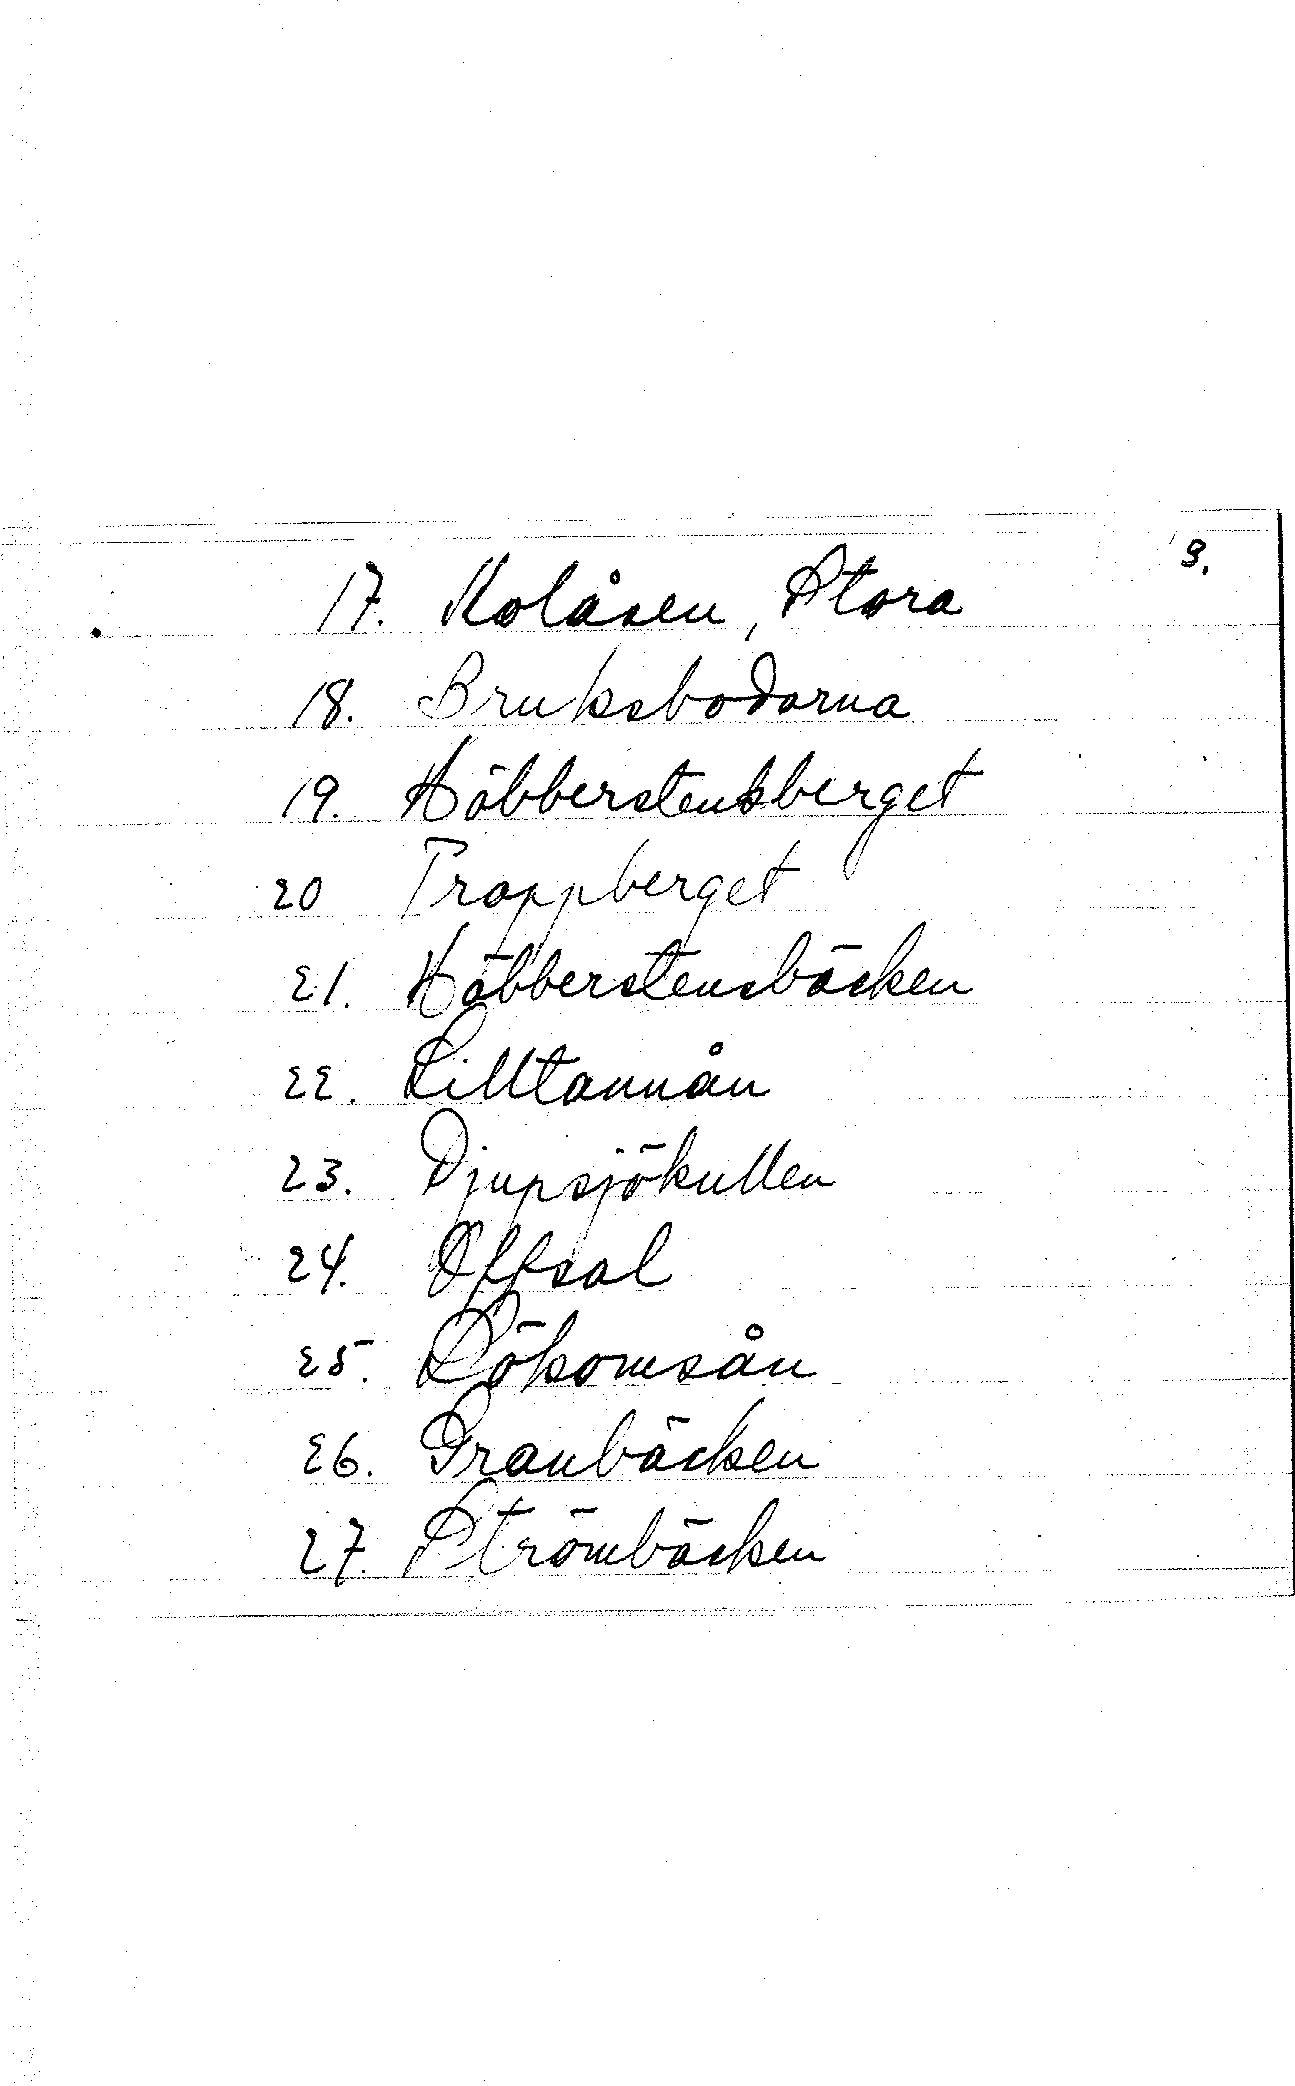 3.
17. Kolåsen, Stora
18. Bruksbodarna
19. Höbberstenkberget
20 Trappberget
21. Höbberstensbäcken
22. Lilltannån
23. Djupsjökullen
24. Offsal
25. Lökomsån
26. Granbäcken
27. Strömbäcken